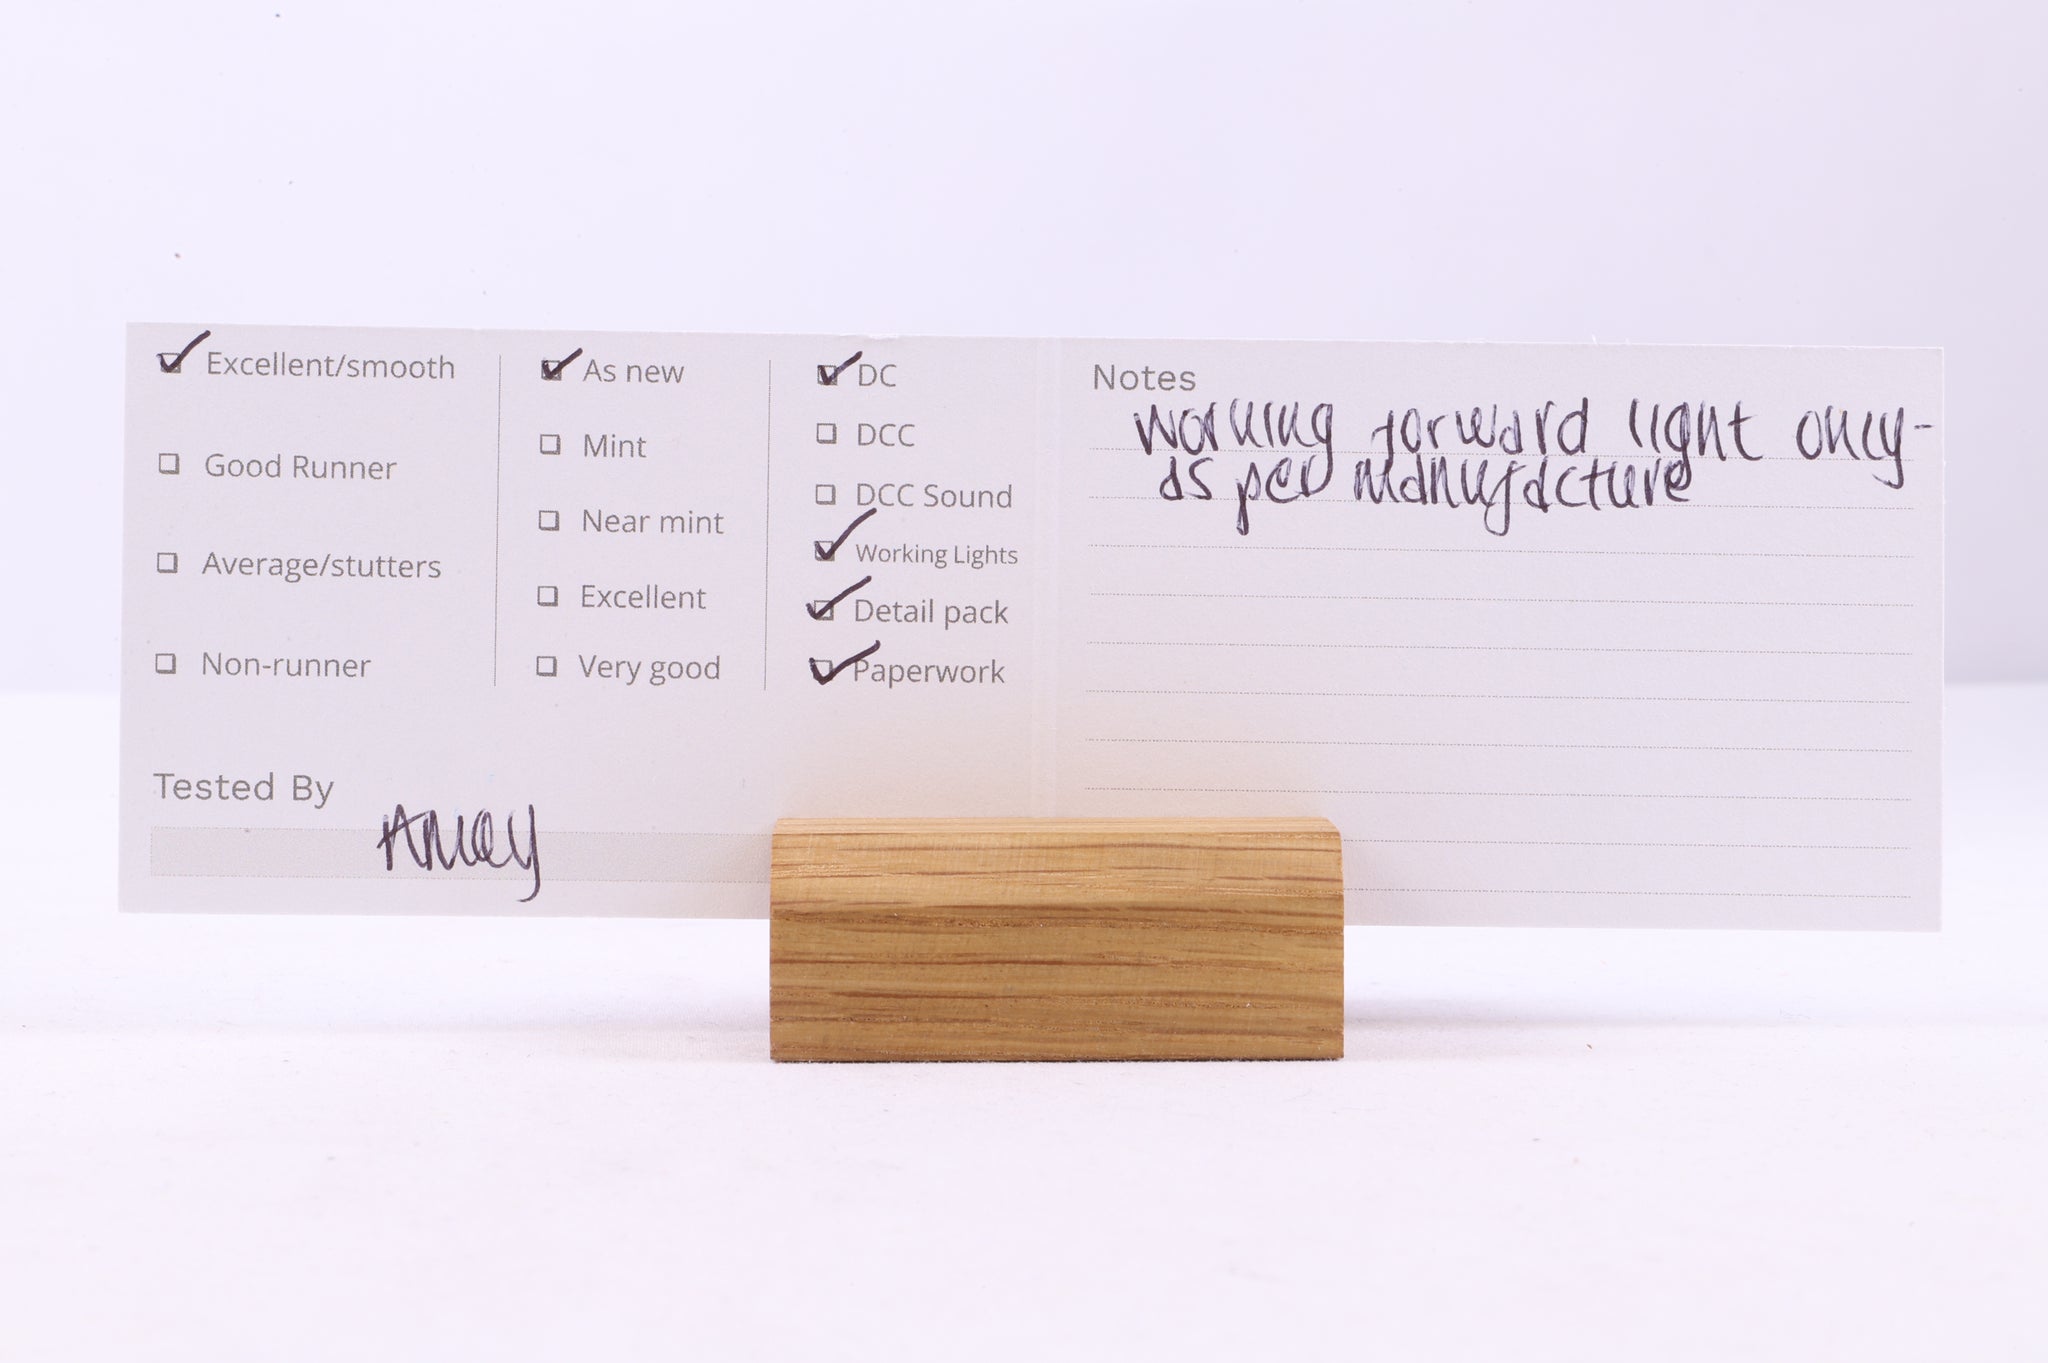 Excellent/smooth
Good Runner
Average/stutters
Non-runner
As new
Mint
Near mint
Excellent
Very good
DC
DCC
DCC Sound
Working Lights
Detail pack
Paperwork
Tested By
Notes
working forward light only-
as per manufacture